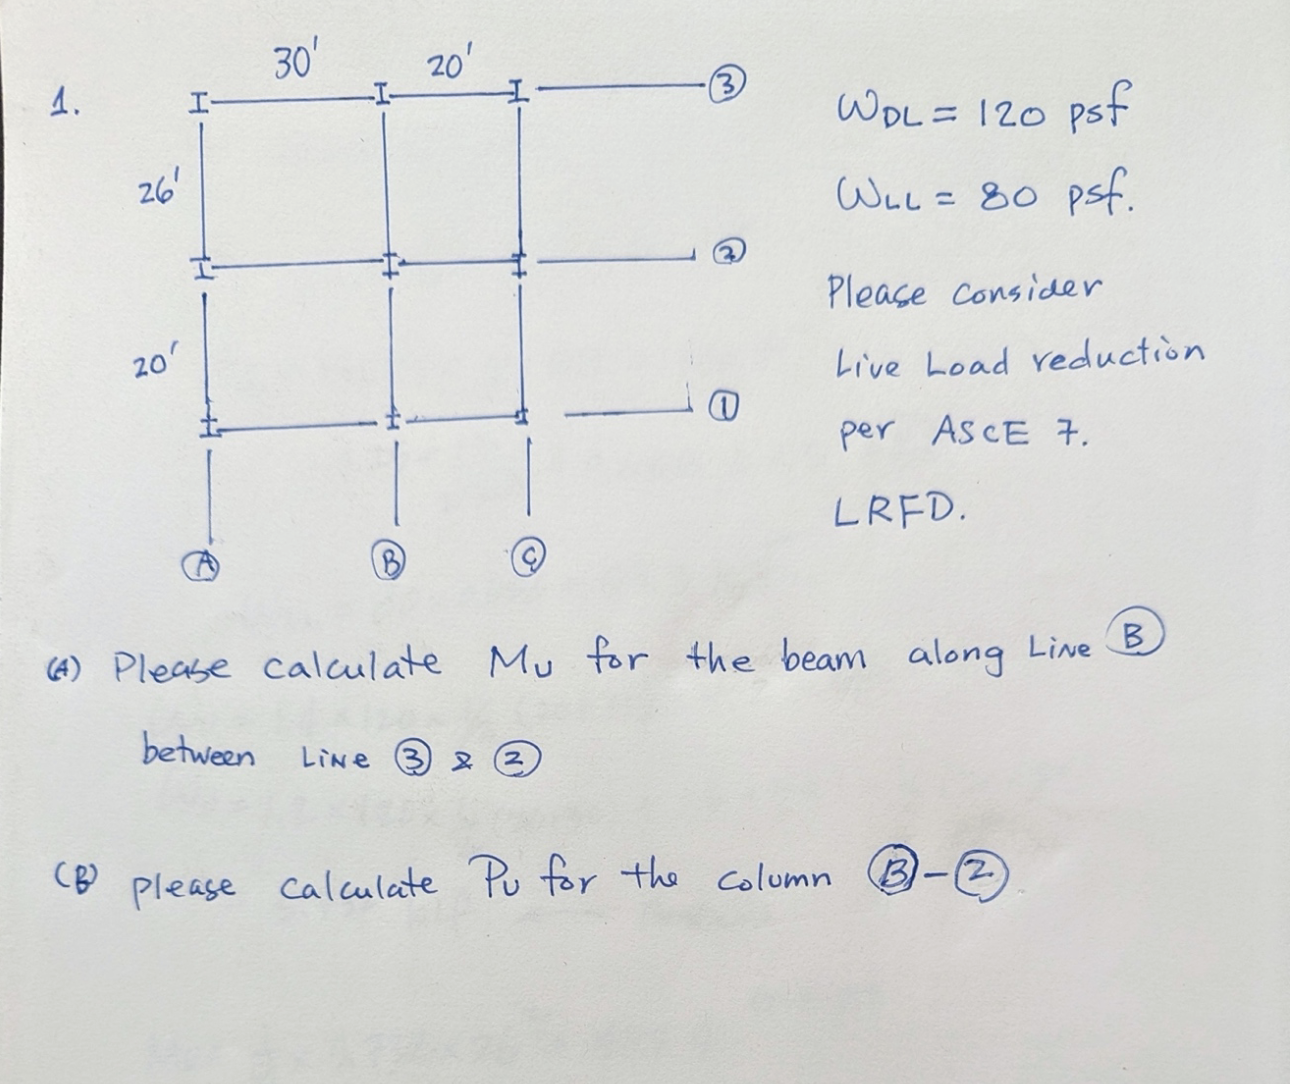 1.
30' 20'
26'
20'
③
②
①
Ⓐ Ⓑ Ⓒ
WDL = 120 psf
WLL = 80 psf.
Please consider
Live Load reduction
per ASCE 7.
LRFD.
(A) Please calculate Mu for the beam along Line Ⓑ
between Line ③ & ②
(B) please calculate Pu for the column Ⓑ-②